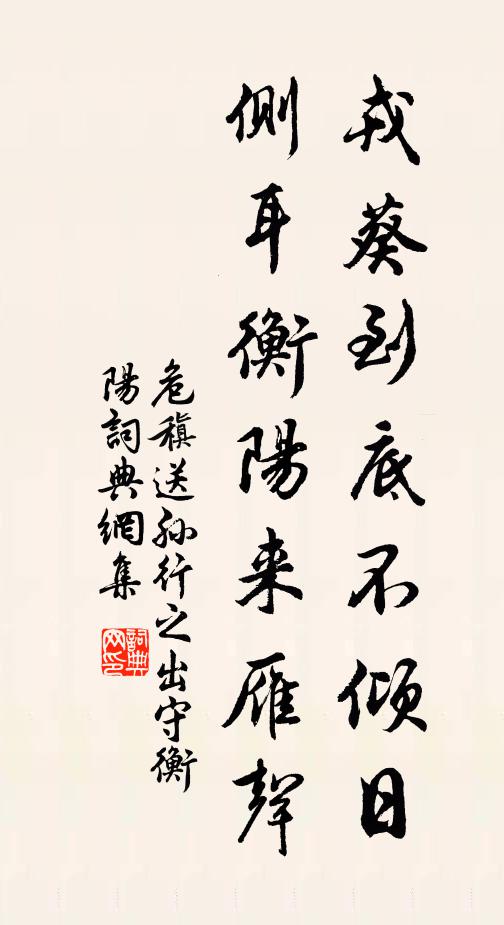 戎葵到底不傾日
側耳衡陽来雁聲
危稹送孙行之出守衡
陽詞典網集
詞典
网印